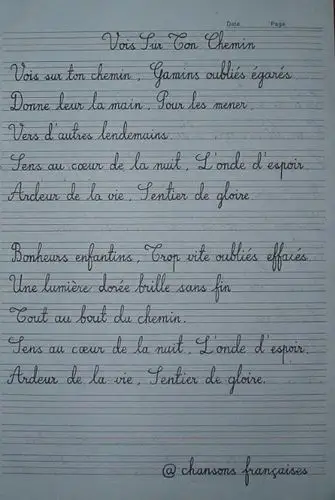 Date Page
Vois Sur Ton Chemin
Vois sur ton chemin, Gamins oubliés égarés
Donne leur la main, Pour les mener
Vers d'autres lendemains
Sens au cœur de la nuit, L'onde d'espoir
Ardeur de la vie, Sentier de gloire
Bonheurs enfantins, Trop vite oubliés effacés
Une lumière dorée brille sans fin
Tout au bout du chemin.
Sens au cœur de la nuit, L'onde d'espoir,
Ardeur de la vie, Sentier de gloire.
@ chansons françaises